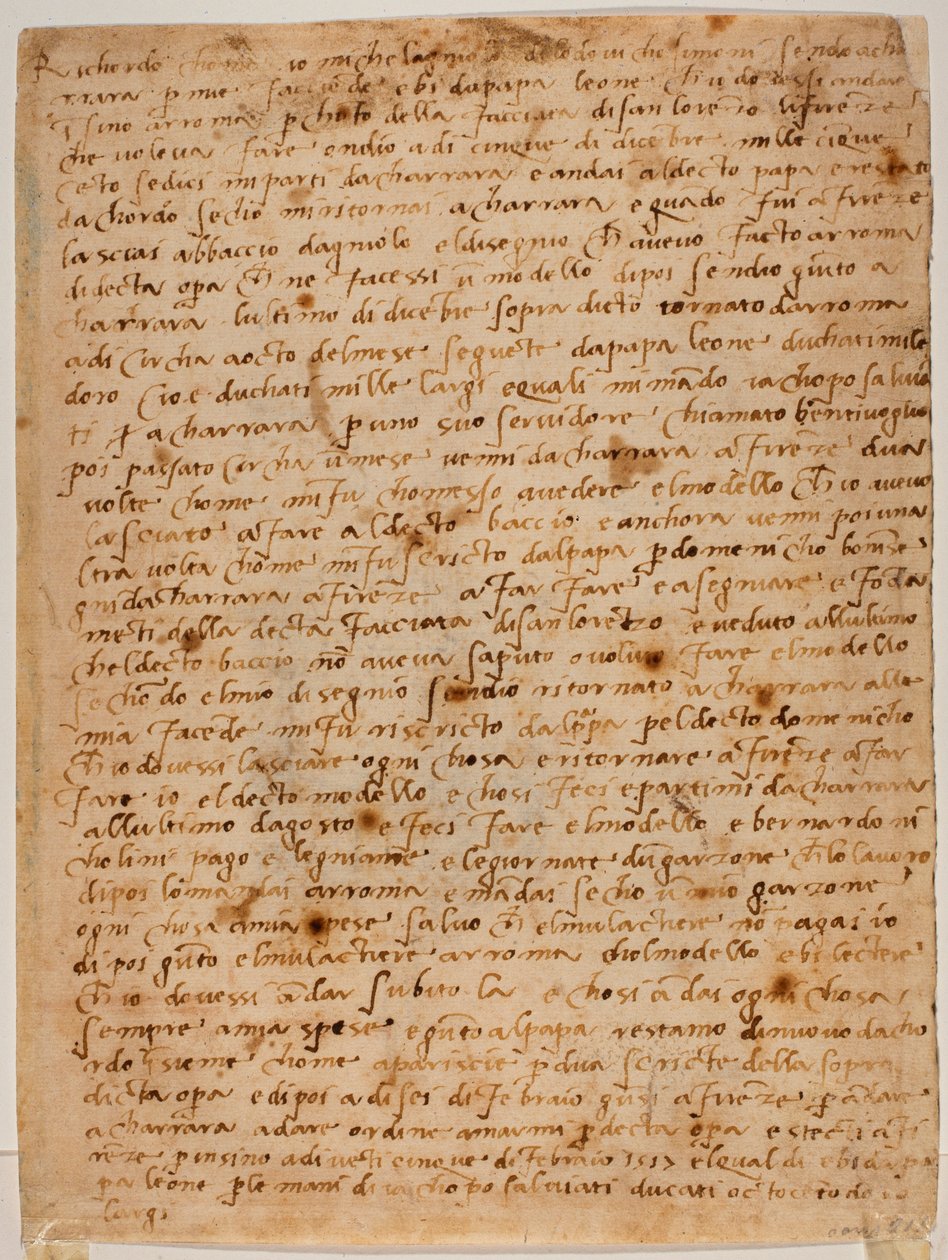 Richordo chome io michelagniolo dilodovicho simoni sendo acha
rrara p mie facciēde ebi dapapa leone ch' io dovessi andare
īsino arroma p chōto della facciata di san lorēzo di firēze
che voleva fare ondio adi cinque di dicēbre mille cīque
cēto sedici miparti da charrara e andai aldecto papa e restato
dachordo secho mi ritornai a charrara e quādo fui a firēze
lasciai abbaccio dagniolo el disegnio ch' avevo facto arroma
didecta opa ch' ne facessi ū modello dipoi sendio giūto a
charrara lultimo di dicēbre sopra dicto tornato darroma
adi circha aocto delmese seguēte dapapa leone duchati mile
doro cioe duchati mille largi e quali mi mādo iachopo salvia
ti p a charrara p uno suo servidore chiamato bentivoglio
poi passato circha ū mese venni da charrara a firēze dua
volte chome mi fu chomesso avedere elmodello ch' io avevo
lasciato a fare aldecto baccio e anchora venni poi una
ltra volta chome mi fu scricto dalpapa p domenicho bonīse
gni da charrara a firēze a far fare e a segniare e fōda
mēti della decta facciata di san lorēzo e veduto allultimo
cheldecto baccio nō aveva saputo o voluto fare elmodello
sechōdo elmio disegnio sendio ritornato a charrara alle
mia facēde mi fu riscricto dalpapa pel decto domenicho
ch' io dovessi lasciare ogni chosa e ritornare a firēze a far
fare io eldecto modello e chosi feci e partimi da charrara
allultimo dagosto e feci fare elmodello e bernardo ni
cholini pago e legniame e le giornate dū garzone ch' lo lavoro
dipoi lo mandai arroma e mādai secho ū mio garzone
ogni chosa a mia spese salvo ch' elmulactiere nō pagai io
dipoi giūto elmulactiere arroma cholmodello ebi lectere
ch' io dovessi ādar subito la e chosi ādai ogni chosa
sempre a mia spese e giūto alpapa restamo dinuovo dacho
rdo īsieme chome apariscie p dua scricte della sopra
dicta opa e dipoi adi sei di febraio giūsi a firēze p ādare
a charrara a dare ordine a marmi p decta opa e stecti a fi
rēze p insino adi vēticinque di febraio 1517 elqual di ebi da pa
pa leone p le mani di iachopo salviati ducati octocēto doro
largi